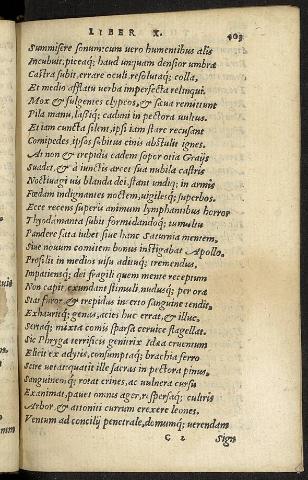 LIBER X. 403
Summisere sonum: cum vero humentibus alis
Incubuit, piceaq; haud unquam densior umbra
Castra subit, errare oculi, resolutaq; colla,
Et medio affatu verba imperfecta relinqui.
Mox & fulgentes clypeos, & sæua remittunt
Pila manu, lassiq; cadunt in pectora uultus.
Et iam cuncta silent, ipsi iam stare recusant
Cornipedes, ipsos subitus cinis abstulit ignes.
At non & trepidis eadem sopor otia Graijs
Suadet, & à iunctis arcet sua nubila castris
Noctiuagi uis blanda dei, stant undiq; in armis
Fœdam indignantes noctem, uigilesq; superbos.
Ecce recens superûm animum lymphantibus horror
Thyodamanta subit formidandoq; tumultu
Pandere fata iubet siue hanc Saturnia mentem,
Siue nouum comitem bonus instigabat Apollo.
Prosilit in medios uisu adituq; tremendus,
Impatiensq; dei fragili quem mente receptum
Non capit, exundant stimuli, nudusq; per ora
Stat furor & trepidas incerto sanguine tendit,
Exhauritq; genas, acies huc errat, & illuc,
Sertaq; mixta comis sparsa ceruice flagellat.
Sic Phryga terrificis genitrix Idæa cruentum
Elicit ex adytis, consumptaq; brachia ferro
Scire uetat, quatit ille sacras in pectora pinus,
Sanguineosq; rotat crines, ac uulnera cursu
Exanimat, pauet omnis ager, respersaq; cultris
Arbor, & attoniti currum erexere leones.
Ventum ad concilij penetrale, domumq; uerendam
C 2 Sign